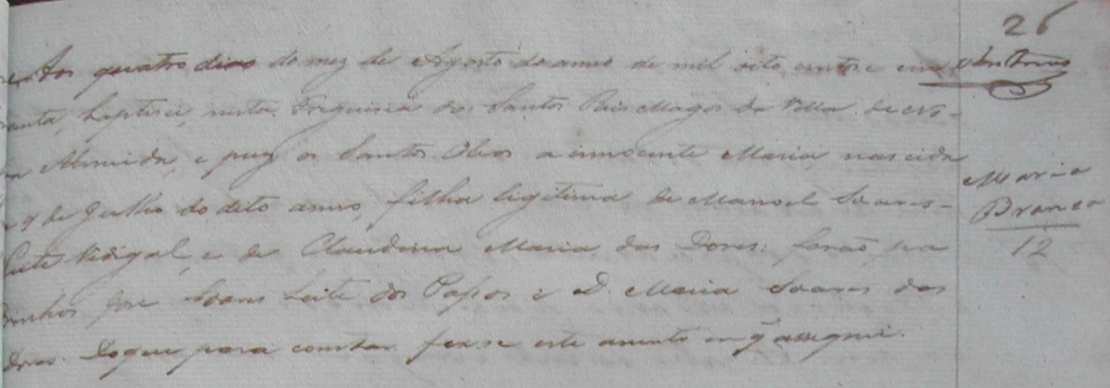 26
Aos quatro dias do mez de Agosto do anno de mil oito centos e cinco
enta, baptisei, nesta Freguisia dos Santos Reis Magos da Villa de No-
va Almeida, e puz os Santos Oleos a innocente Maria, nascida
a 9 de Julho do dito anno, filha legitima de Manoel Soares
Leite Vidigal, e de Claudina Maria das Dores: forão pa
drinhos José Soares Leite dos Passos e D. Maria Soares das
Dores. Do que para constar fez-se este assento em q̃ assignei.
Maria
Branca
12